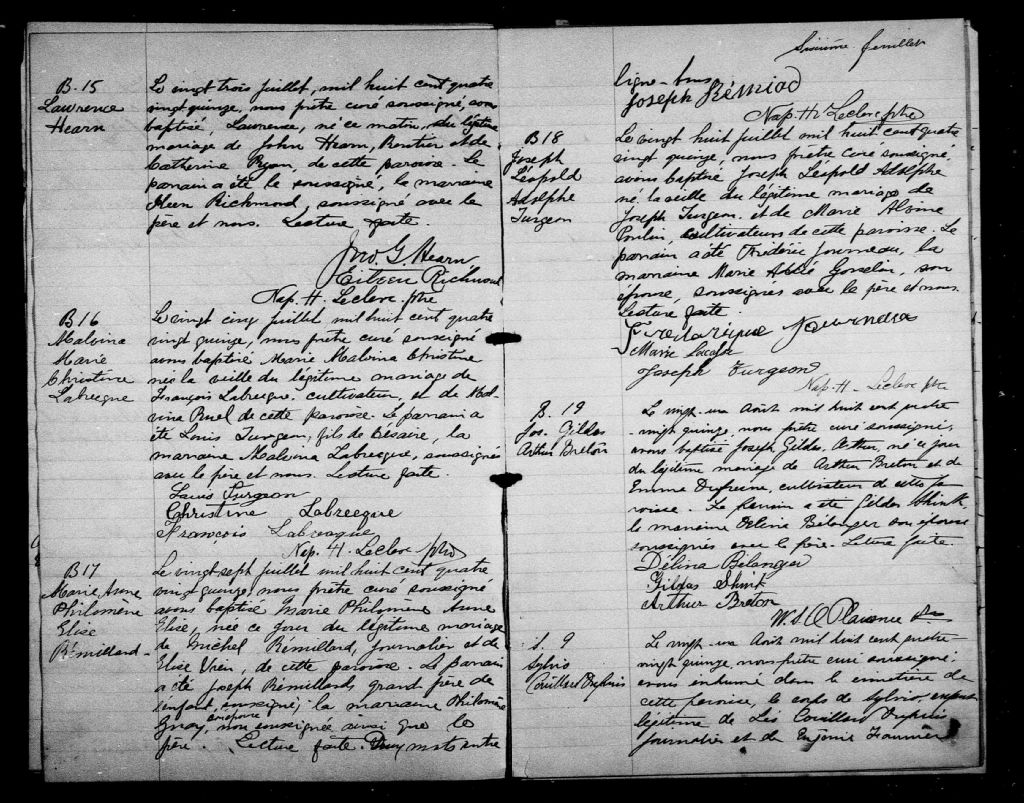 B. 15
Lawrence
Hearn
Le vingt trois juillet, mil huit cent quatre
vingt quinze, nous prêtre curé soussigné, avons
baptisé, Lawrence, né ce matin, du légitime
mariage de John Hearn, Rentier et de
Catherine Ryan, de cette paroisse. Le
parrain a été le soussigné, la marraine
Richmond, soussigné avec le
père et nous. Lecture faite.
Jno G. Hearn
Richmond
Nap. H. Leclerc ptre
B 16
Malvina
Marie
Christine
Labrecque
Le vingt cinq juillet, mil huit cent quatre
vingt quinze, nous prêtre curé soussigné
avons baptisé Marie Malvina Christine
née la veille du légitime mariage de
François Labrecque, cultivateur, et de Mal-
vina Ruel de cette paroisse. Le parrain a
été Louis Turgeon, fils de Césaire, la
marraine Malvina Labrecque, soussignés
avec le père et nous. Lecture faite.
Louis Turgeon
Christine Labrecque
François Labrecque
Nap. H. Leclerc ptre
B 17
Marie Anne
Philomène
Elise
Rémillard
Le vingt sept juillet mil huit cent quatre
vingt quinze, nous prêtre curé soussigné
avons baptisé Marie Philomène Anne
Elise, née ce jour du légitime mariage
de Michel Rémillard, journalier et de
Elise, de cette paroisse. Le parrain
a été Joseph Rémillard grand père de
l'enfant, soussigné; la marraine Philomène
non soussignée ainsi que le
père. Lecture faite. Deux mots entre
Sixième feuillet
ligne bons
Joseph Rémiad
Nap. H. Leclerc ptre
B 18
Joseph
Léopold
Adolphe
Turgeon
Le vingt huit juillet mil huit cent quatre
vingt quinze, nous prêtre curé soussigné,
avons baptisé Joseph Léopold Adolphe
né la veille du légitime mariage de
Joseph Turgeon et de Marie
Poulin, cultivateurs de cette paroisse. Le
parrain a été Frédéric, la
marraine Marie Gosselin, son
épouse, soussignés avec le père et nous.
Lecture faite.
Marie
Joseph Turgeon
Nap. H. Leclerc ptre
B. 19
Jos. Gildas
Arthur Breton
Le vingt-un Août mil huit cent quatre
-vingt quinze, nous prêtre curé soussigné,
avons baptisé Joseph Gildas Arthur, né ce jour
du légitime mariage de Arthur Breton et de
Emma, cultivateur de cette pa-
roisse. Le parrain a été Gildas Shink,
la marraine Délina Bélanger son épouse
soussignés avec le père. Lecture faite.
Délina Bélanger
Gildas Shink
Arthur Breton
W. S. O. Plaisance Ptre
S. 9
Sylvio
Couillard Dupuis
Le vingt-un Août mil huit cent quatre-
vingt quinze, nous prêtre curé soussigné,
avons inhumé dans le cimetière de
cette paroisse, le corps de Sylvio, enfant
légitime de Léi Couillard Dupuis
journalier et de Eugénie Fournier